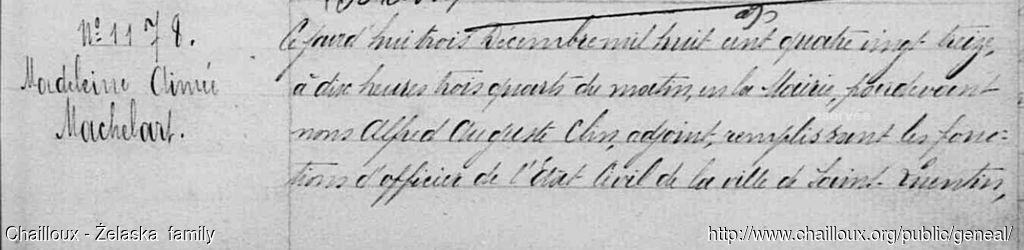 N° 1178.
Madeleine Aimée
Machelart.
Cejourd'hui trois Décembre mil huit cent quatre vingt treize,
à dix heures trois quarts du matin, en la Mairie, pardevant
nous Alfred Auguste, adjoint, remplissant les fonc=
tions d'officier de l'Etat Civil de la ville de Saint-Quentin,
Chailloux - Želaska family
http://www.chailloux.org/public/geneal/